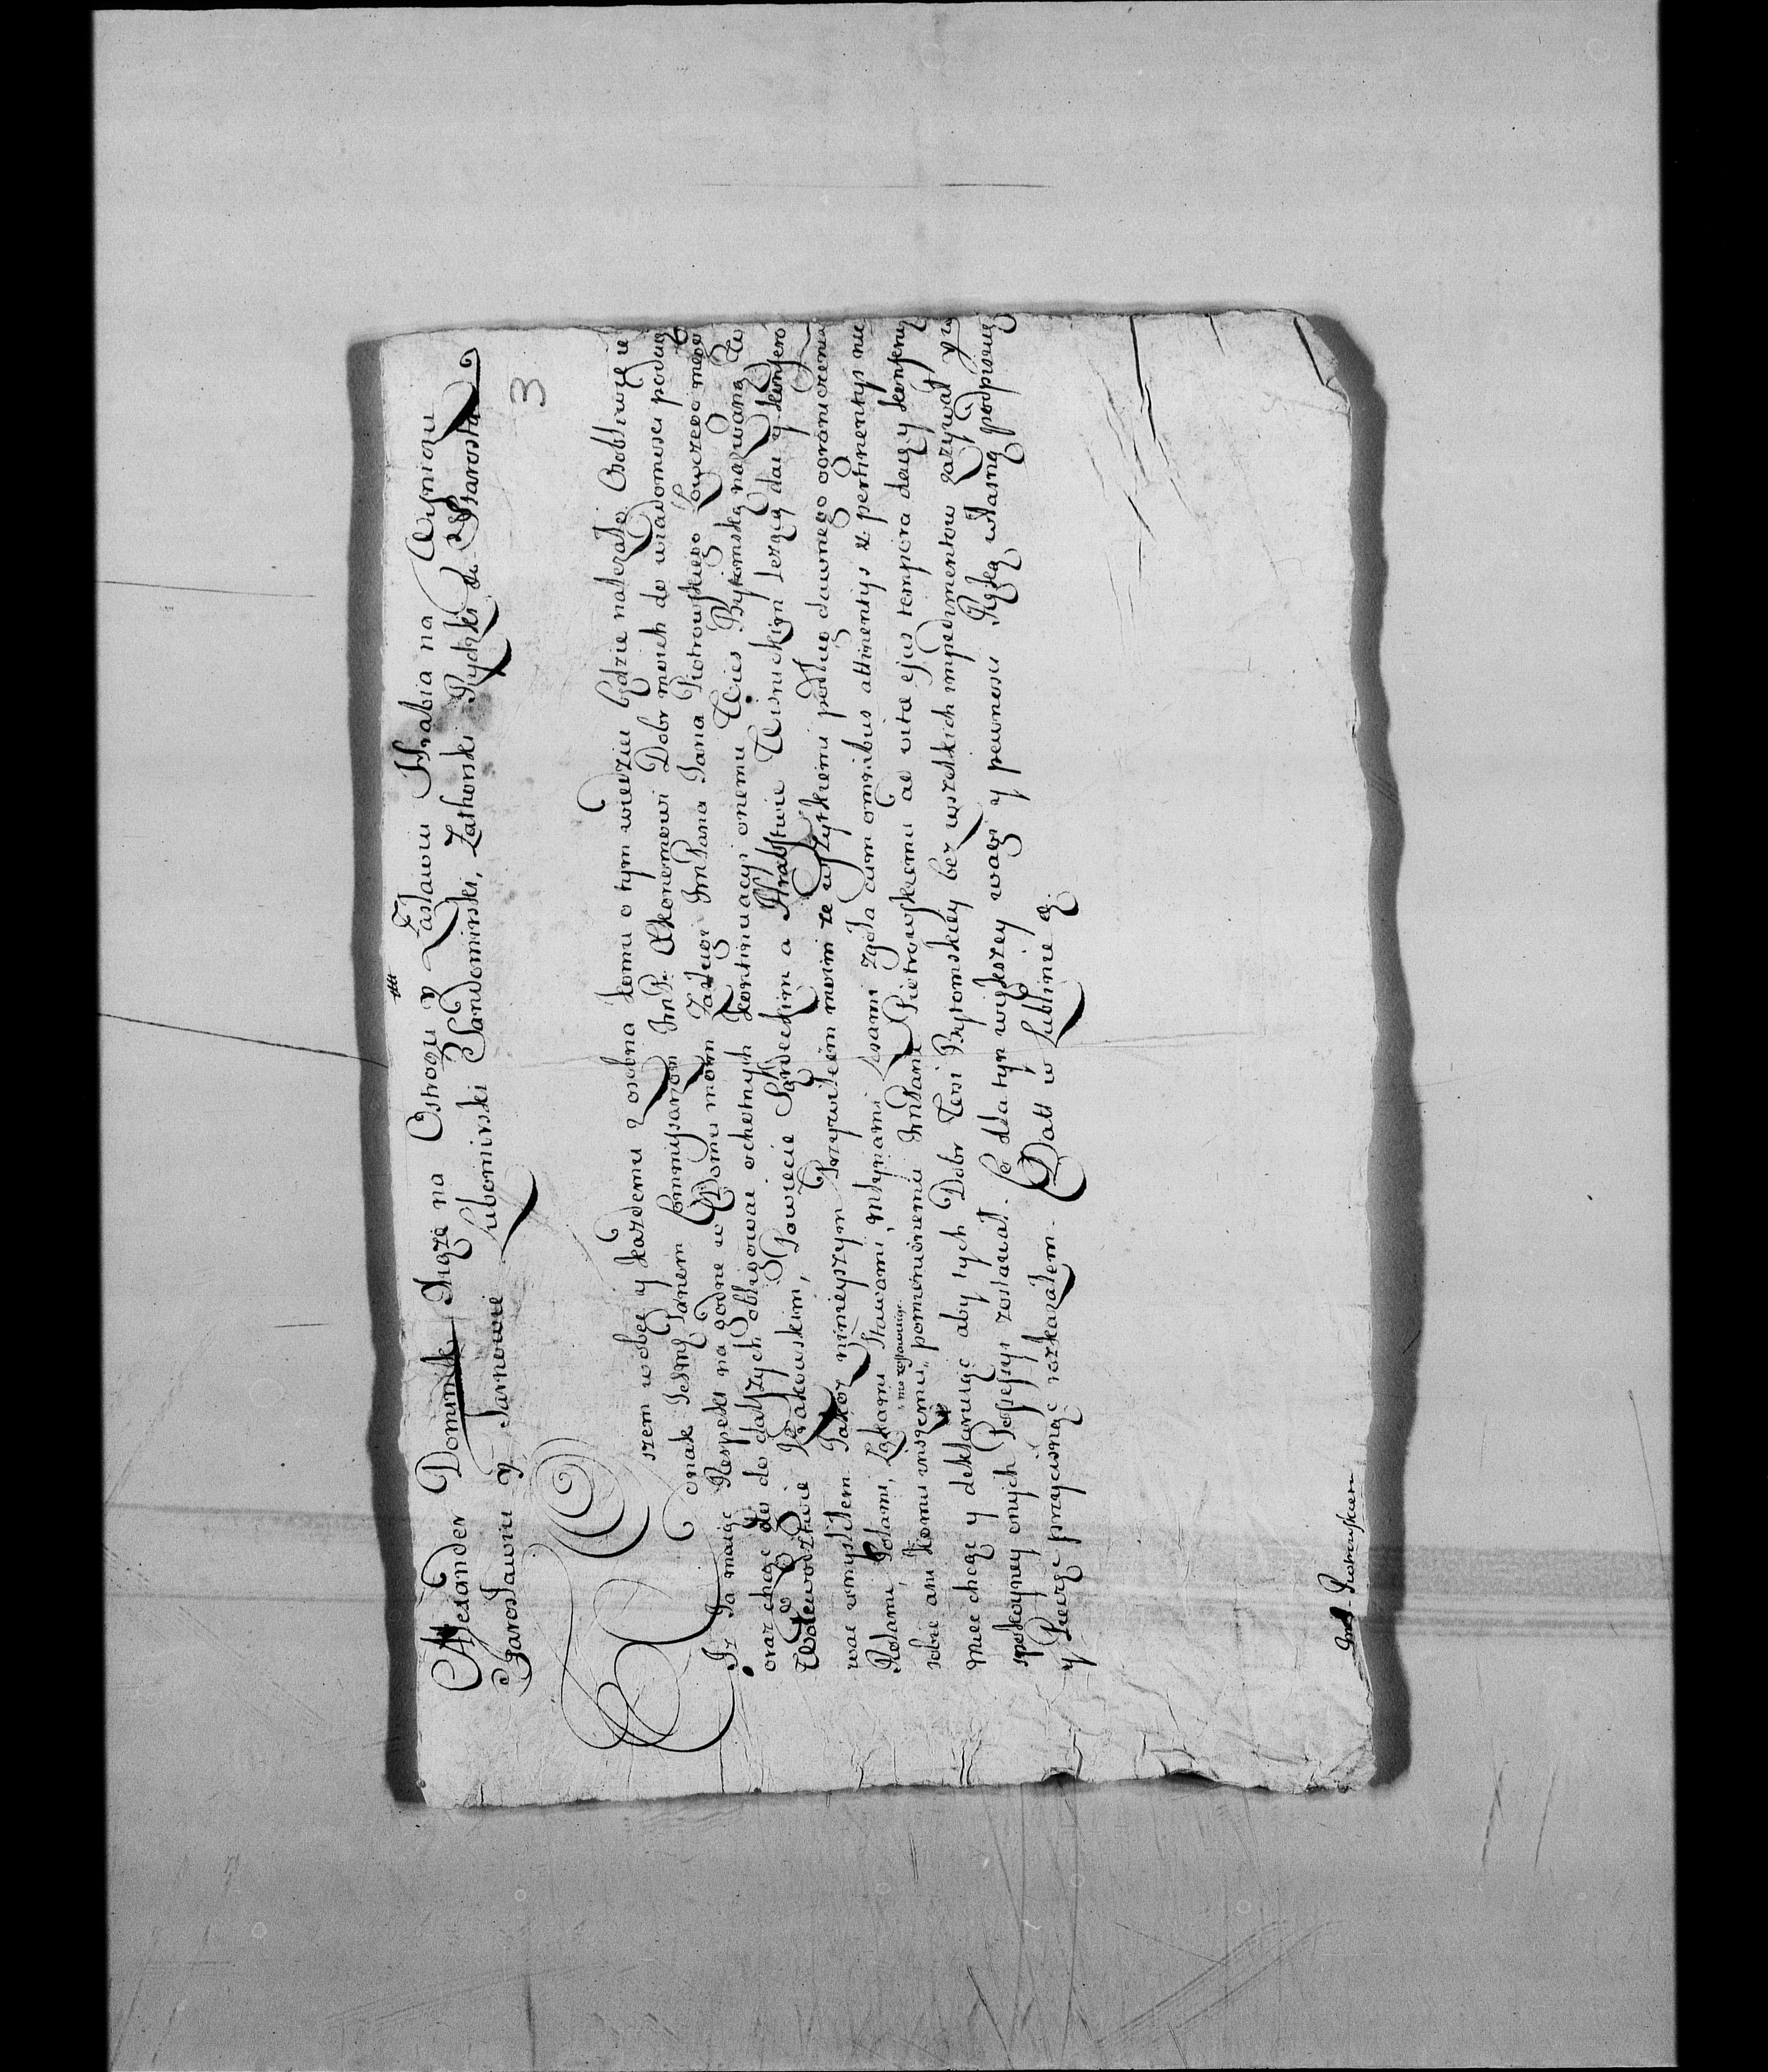 Alexander Dominik Xiąze na Ostrogu y Zasławiu Hrabia na Wisniczu
Jarosławiu y Tarnowie Lubomirski Sandomirski, Zathorski Rycki &c Starosta
3
szem wobec y kazdemu z osobna komu o tym wiedziec będzie nalezało Osobliwie ie
onak Ichmę Panem Commisarzom ImP. Ekonomowi Dobr moich do wiadomosci podaię
Iz Ja maiąc Respekt na godne w Domu moim zasługi ImPana Jana Piotrowskiego Łowczego mego
oraz chcąc go do dalszych obligowac ochotnych kontinuacyi onemu Wies Bytomską nazwaną w
Woiewodztwie Krakowskim, Powiecie Sądeckim a Hrabstwie Wisnickim lezącą dac y konfero
wac umysliłem Jakoz ninieyszym Przywileiem moim ze wszytkiemi podług dawnego ograniczenia
Rolami, Polami, Łąkami Stawami, Młynami Lasami zgoła cum omnibus attinentys & pertinentys nic
nie zostawuiąc
sobie ani komu inszemu, pomienionemu ImPanu Piotrowskiemu ad vitæ ejus tempora daię y konferuię
Miec chcąc y deklaruiąc aby tych Dobr Wsi Bytomskiey bez wszelkich impedimentow zazywał y w
spokoyney onych Possessyi zostawał. Co dla tym większey wagi y pewnosci Ręką własną podpisuię
y Pieczęc przycisnąc rozkazałem. Datt w Lublinie d.
ImP. Piotrowskiem